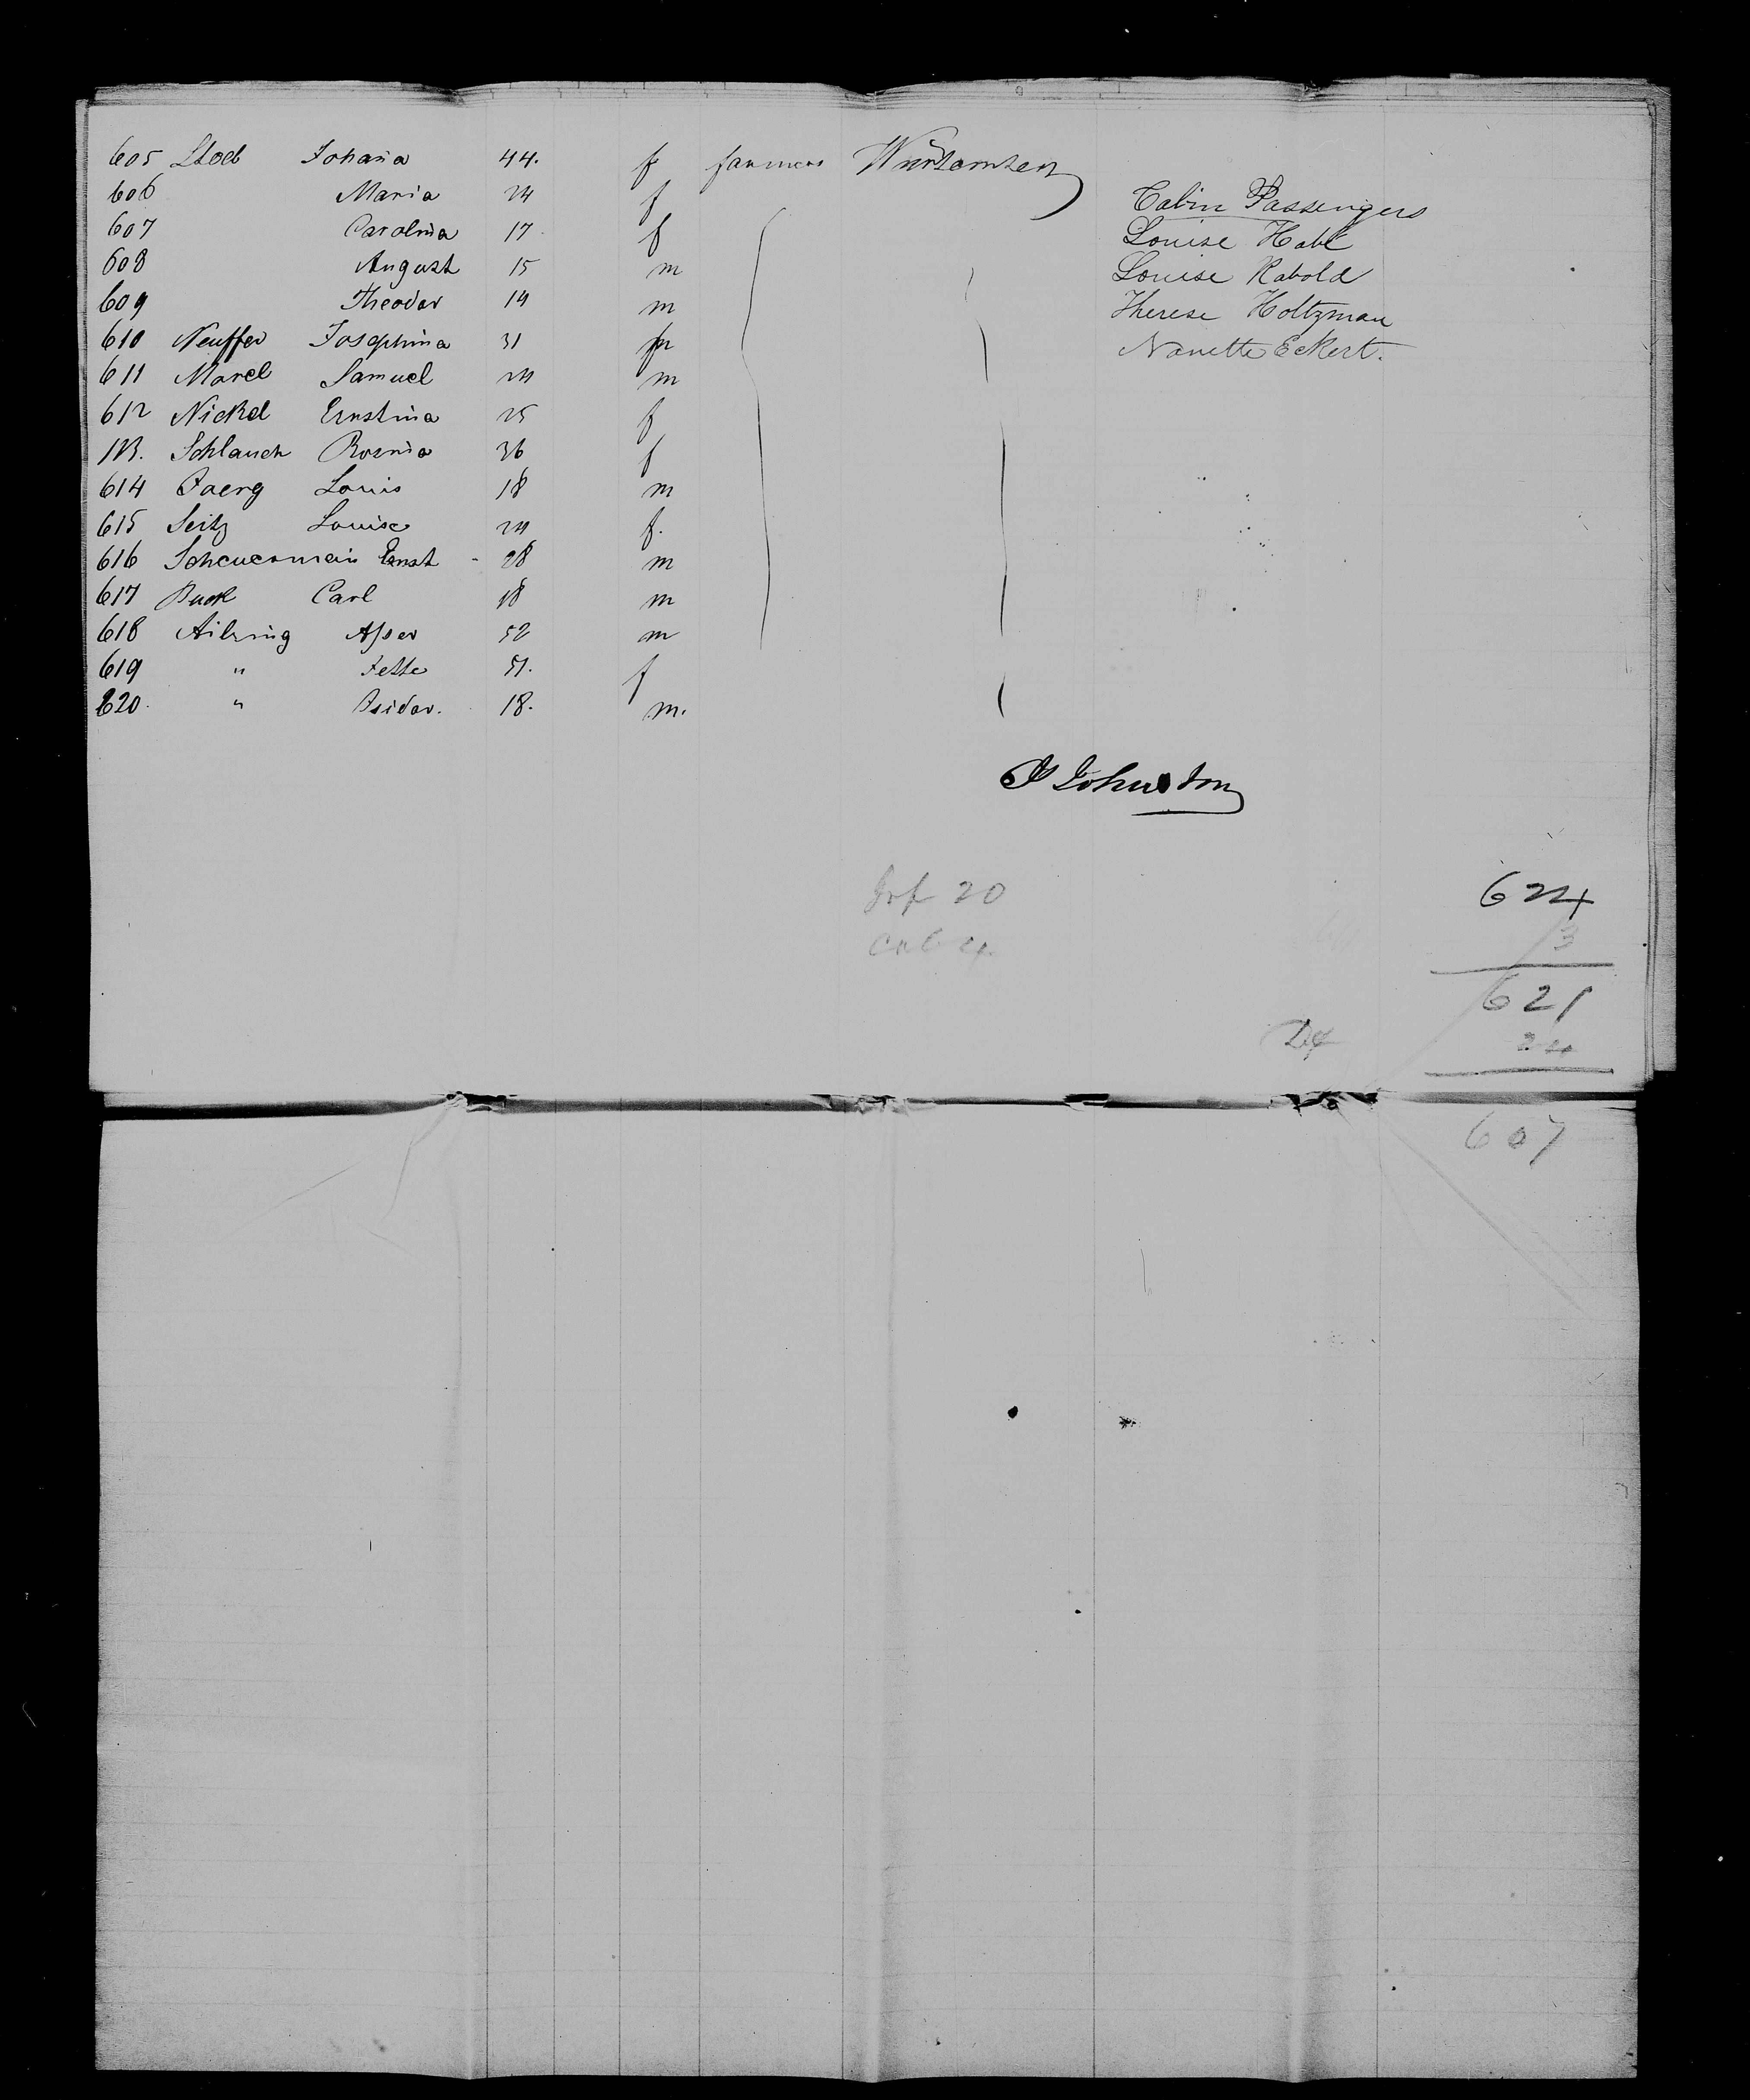 605 Stoeb Johaña 44. f farmers Würtemberg
606 Maria 24 f
607 Carolina 17 f
608 August 15 m
609 Theodor 14 m
610 Neuffer Josephina 31 f
611 Marel Samuel 24 m
612 Nickel Ernstina 25 f
113. Schlauch Rosina 36 f
614 Joerg Louis 18 m
615 Seitz Louise 24 f.
616 Scheuermañ Ernst - 28 m
617 Buck Carl 18 m
618 52 m
619 " Jette 51. f
620. " Isidor. 18. m.
Cabin Passengers
Louise Habt
Louise Rabold
Therese Holtzman
Nanette Eckert.
P Johnston
Inf 20
Cab 4.
624
3
621
24
607